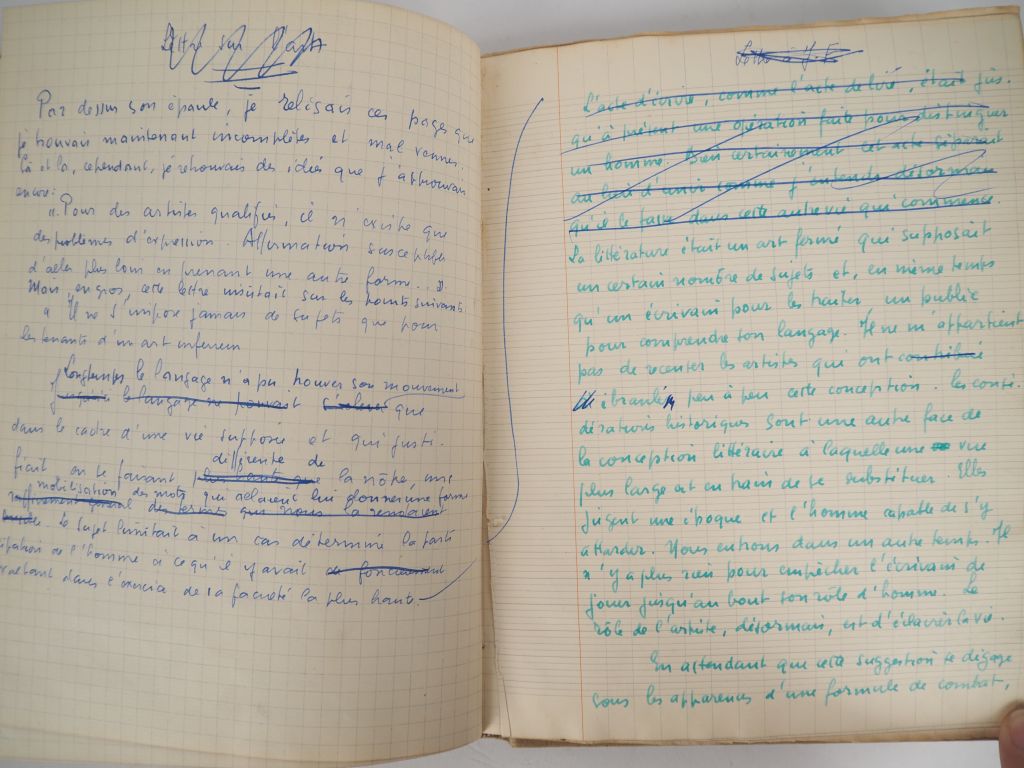 Lettre sur l'art
Par dessus son épaule, je relisais ces pages que
je trouvais maintenant incomplètes et mal venues.
Là et là, cependant, je retrouvais des idées que j'approuvais
encore:
"Pour des artistes qualifiés, il n'existe que
des problèmes d'expression. Affirmation susceptible
d'aller plus loin en prenant une autre forme..."
Mais, en gros, cette lettre insistait sur les points suivants:
"Il ne s'impose jamais de sujets que pour
les tenants d'un art inférieur
Longtemps le langage n'a pu trouver son mouvement
le langage ne pouvait s'élever que
dans le cadre d'une vie supposée et qui justi-
différente de
fiait, en se faisant la nôtre, une
mobilisation des mots qui relaient lui donner une forme
général des termes qui nous la rendaient
Le sujet limitait à un cas déterminé la parti-
cipation de l'homme à ce qu'il y avait de foncièrement
exaltant dans l'exercice de sa faculté la plus haute.
Lettre à J. E
L'acte d'écrire, comme l'acte de lire, était jus-
qu'à présent une opération faite pour distinguer
un homme. Bien certainement cet acte séparait
au lieu d'unir comme j'entends désormais
qu'il le fasse dans cette autre vie qui commence.
La littérature était un art fermé qui supposait
un certain nombre de sujets et, en même temps
qu'un écrivain pour les traiter un public
pour comprendre son langage. Il ne m'appartient
pas de recenser les artistes qui ont contribué
ébranlé peu à peu cette conception. Les consi-
dérations historiques sont une autre face de
la conception littéraire à laquelle une vue
plus large est en train de se substituer. Elles
jugent une époque et l'homme capable de s'y
attarder. Nous entrons dans un autre temps. Il
n'y a plus rien pour empêcher l'écrivain de
jouer jusqu'au bout son rôle d'homme. Le
rôle de l'artiste, désormais, est d'éclairer la vie.
En attendant que cette suggestion se dégage
sous les apparences d'une formule de combat,